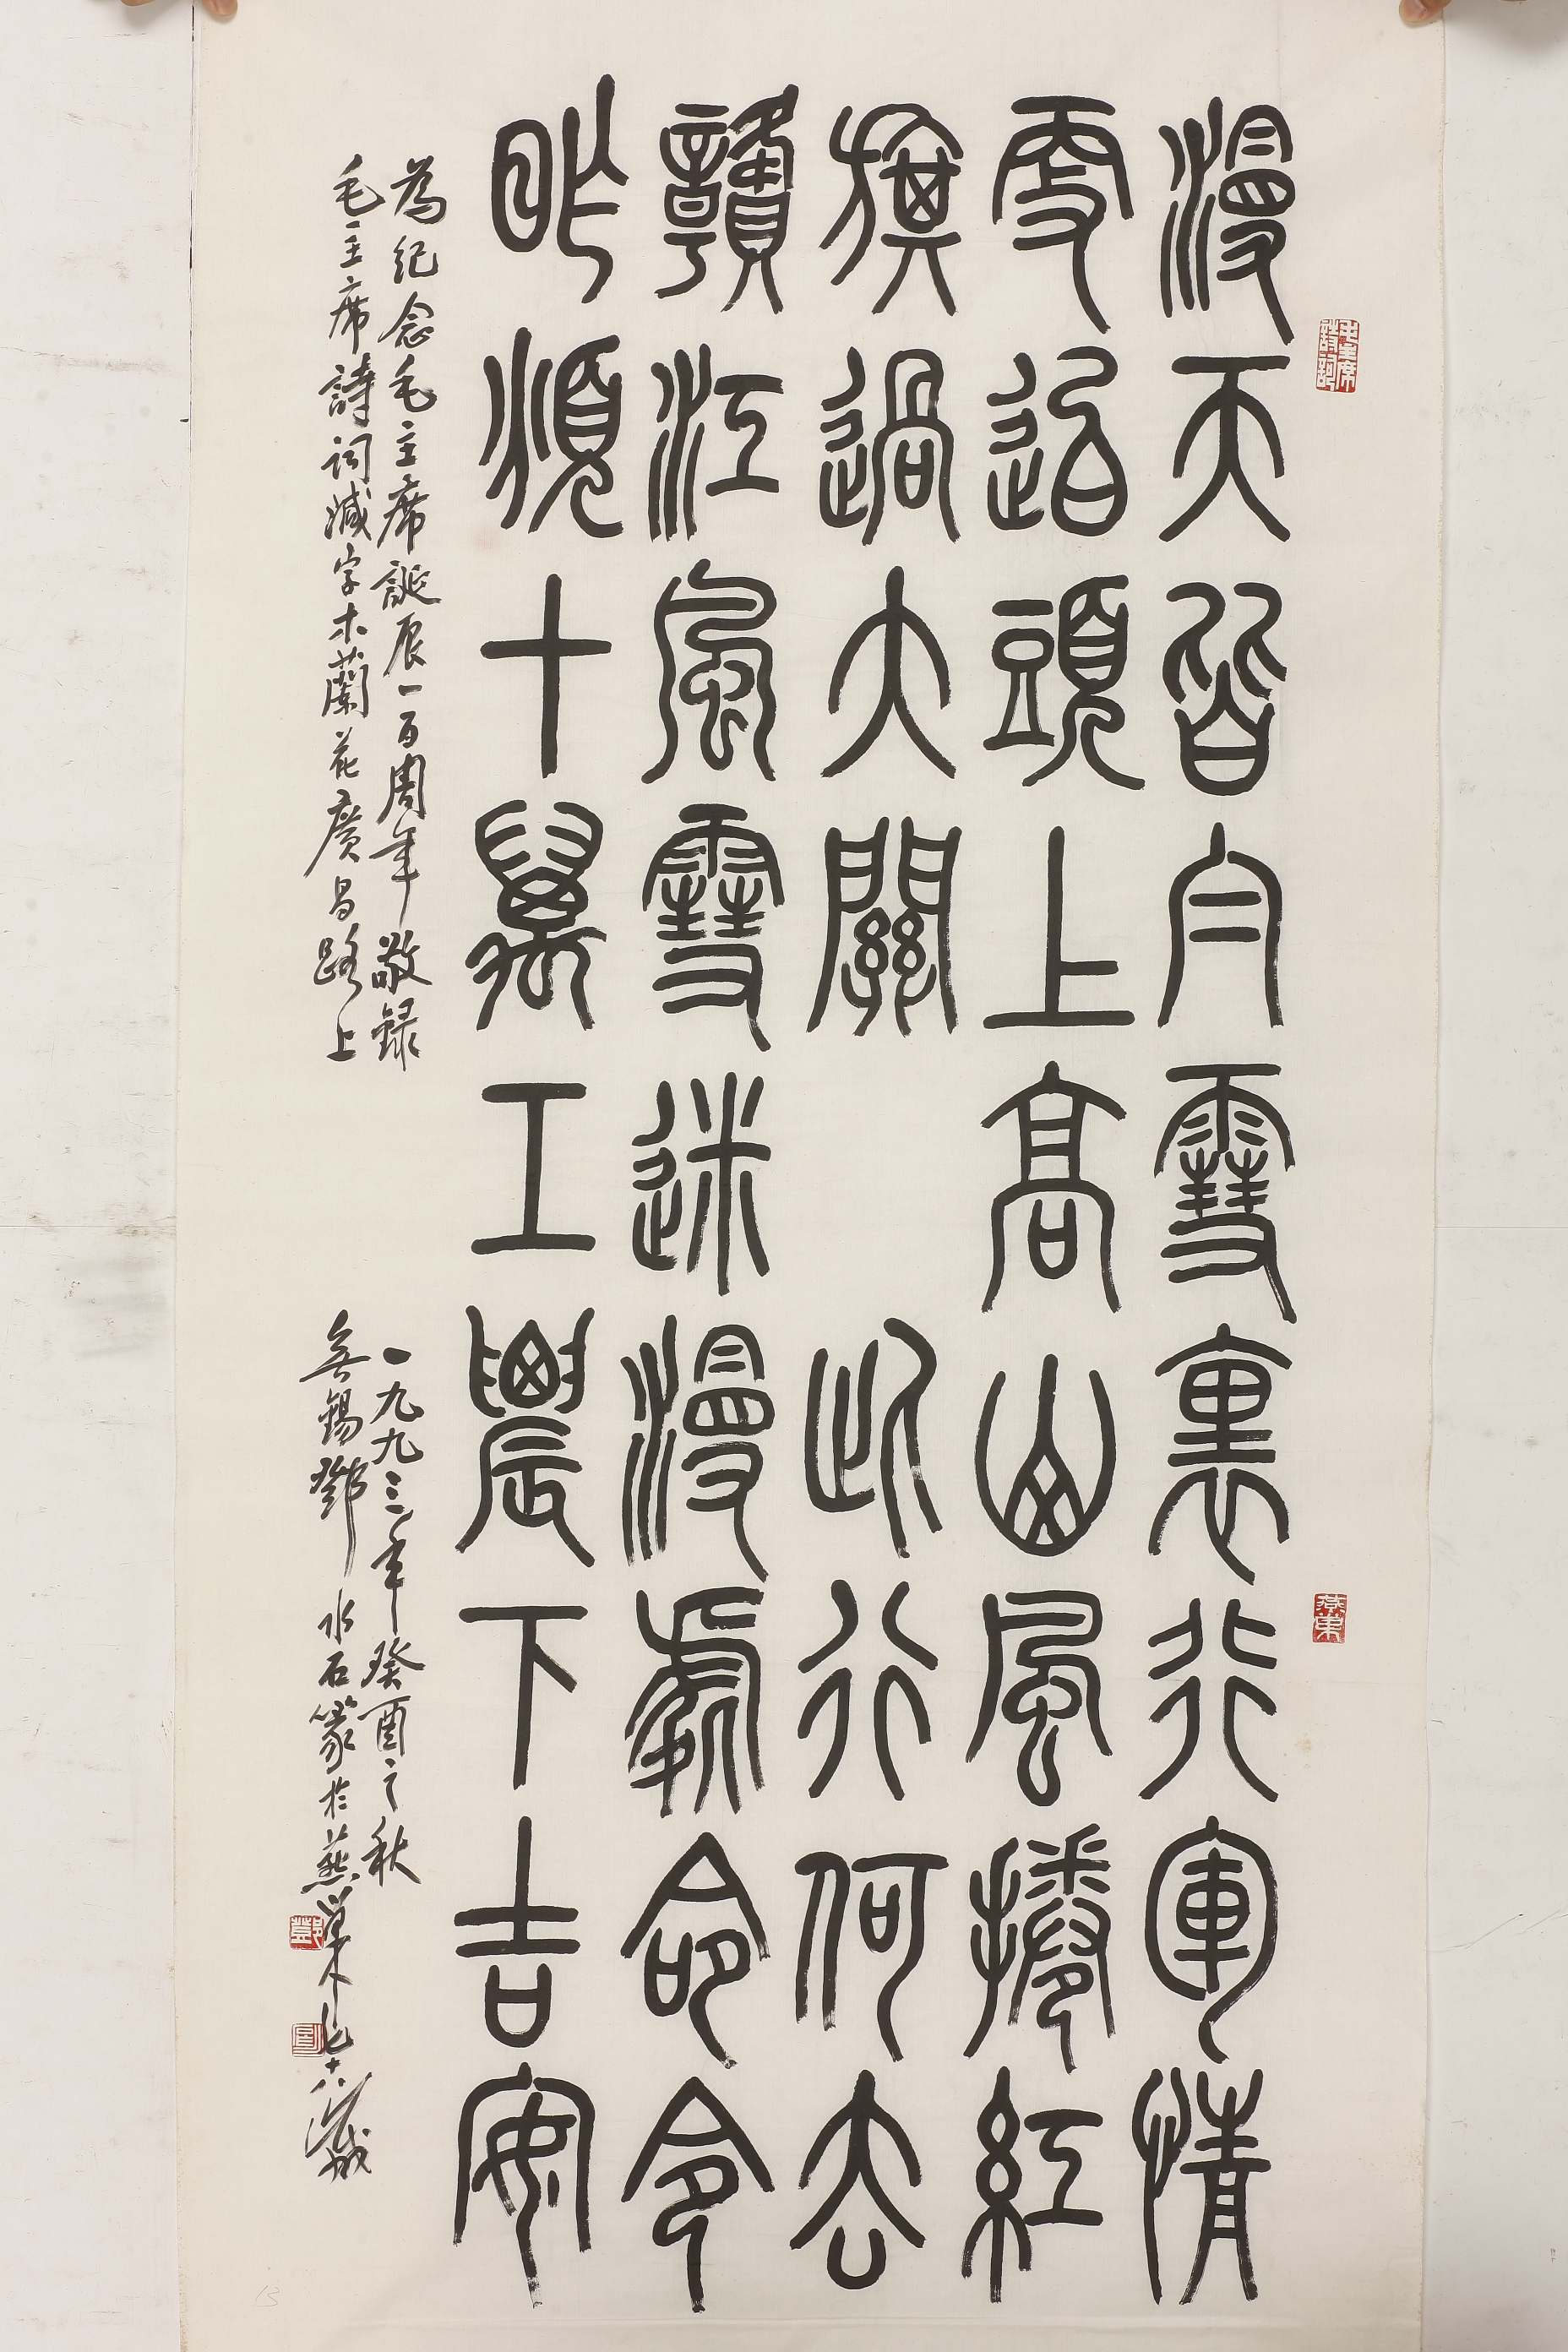 毛主席詩詞
燕巢
漫天皆白雪裏行軍情
更迫頭上高山風捲紅
旗過大關 此行何去
贛江風雪迷漫處命令
昨頒十萬工農下吉安
為紀念毛主席誕辰一百周年敬録 一九九三年癸酉之秋
毛主席詩詞減字木蘭花廣昌路上 無錫鄧水石篆於燕巢七十八歲
鄧